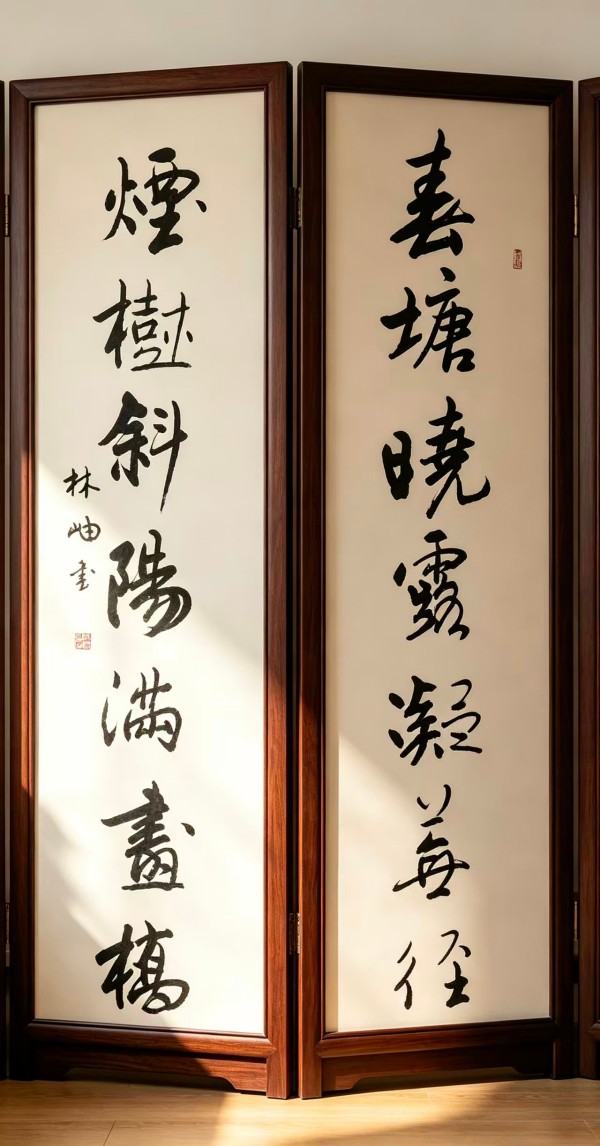 春塘曉露凝蕪徑
煙樹斜陽滿畫橋
林岫書